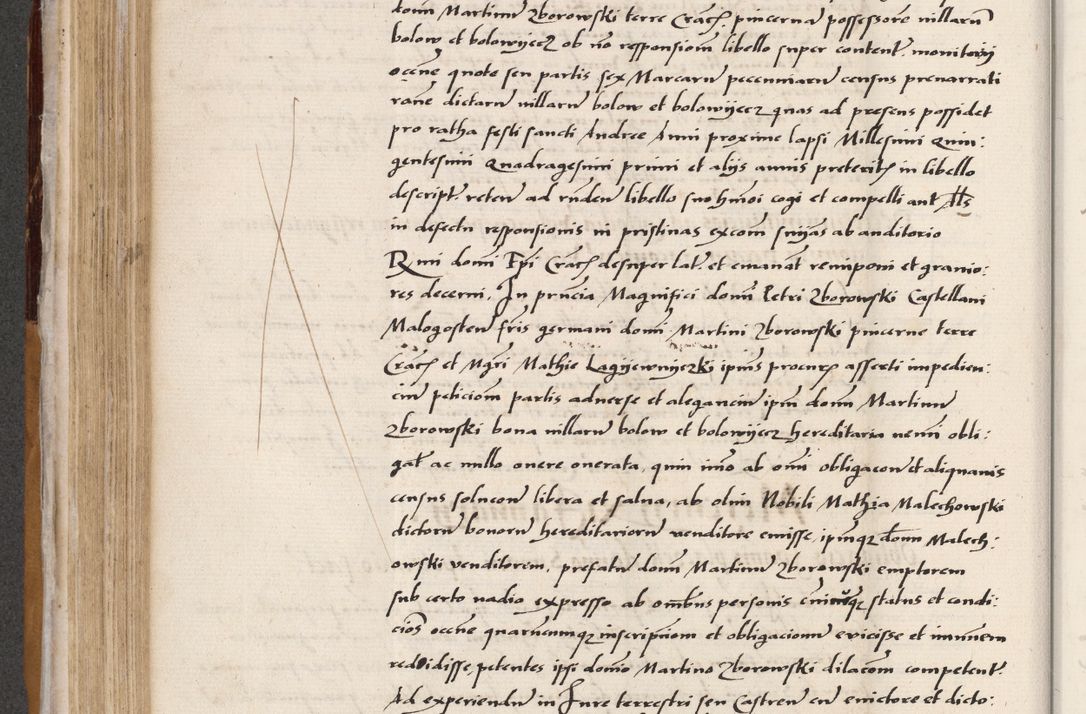 domū Martinū Zborowski terre Crač pincernā possessorē villarū
bolow et bolowyecz ob nō responsionī libello super content. monitorij
occne quote seu partis sex Marcarū pecuniarū census prenarrati
rōne dictarū villarū bolow et bolowyecz quas ad presens possidet
pro ratha festi sancti Andree Anni proxime lapsi Millesimi Quin:
gentesimi Quadragesimi primi et alijs annis preteritꝭ in libello
descript. reten ad rnden libello suo hmoi cogi et compelli aut
in defectu responsionis in pristinas excom snijas ab auditorio
Rmi domi Epi Crač desuper lat. et emanat reimponi et gravio:
res decerni. In pnciā Magnifici domi Petri Zborowski Castellani
Malogosten fris germani domi Martini Zborowski pincerne terre
Crač et Mgri Mathie Lagyewnyczki ipius procurꝭ asserti impedien:
ciū peticiom partis adverse et alegancīu ipm domū Martinū
Zborowski bona villarū bolow et bolowyecz hereditaria nemi obli:
gat ac nullo onere onerata, quin imo ab omi obligacōn et aliquanis
census solucōn libera et salva, ab olim Nobili Mathia Malechowski
dictorū bonorū hereditariorū venditore emisse, ipmqꝫ domū Malech:
owski venditorem, prefatū domū Martinū Zborowski emptorem
sub certo vadio expresso ab ombus personis cuiuscūqꝫ status et condi:
cios occne quarūcumqꝫ inscriptiom et obligacionū evicisse et imunem
reddidisse, petentes ipsi domio Martino Zborowski dilacom competent.
Ad experiendū in Jure terrestri seu Castren cū evictore et dicto: